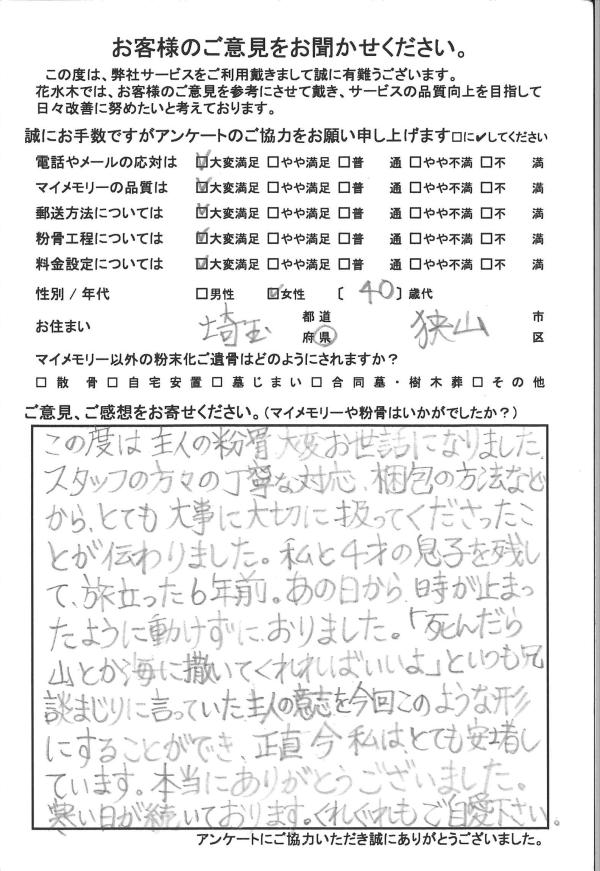 お客様のご意見をお聞かせください。
この度は、弊社サービスをご利用戴きまして誠に有難うございます。
花水木では、お客様のご意見を参考にさせて戴き、サービスの品質向上を目指して
日々改善に努めたいと考えております。
誠にお手数ですがアンケートのご協力をお願い申し上げます□に✔してください
電話やメールの応対は ☑大変満足 □やや満足 □普 通 □やや不満 □不 満
マイメモリーの品質は ☑大変満足 □やや満足 □普 通 □やや不満 □不 満
郵送方法については ☑大変満足 □やや満足 □普 通 □やや不満 □不 満
粉骨工程については ☑大変満足 □やや満足 □普 通 □やや不満 □不 満
料金設定については ☑大変満足 □やや満足 □普 通 □やや不満 □不 満
性別 / 年代 □男性 ☑女性 〔 40 〕歳代
お住まい 埼玉 都道府県 狭山 市区
マイメモリー以外の粉末化ご遺骨はどのようにされますか？
□散 骨 □自宅安置 □墓じまい □合同墓・樹木葬 □その他
ご意見、ご感想をお寄せください。(マイメモリーや粉骨はいかがでしたか？)
この度は主人の粉骨大変お世話になりました。
スタッフの方々の丁寧な対応、梱包の方法など
から、とても大事に大切に扱ってくださったこ
とが伝わりました。私と4才の息子を残し
て、旅立った6年前。あの日から、時が止まっ
たように動けずにおりました。「死んだら
山とか海に撒いてくれればいいよ」といつも冗
談まじりに言っていた主人の意志を今回このような形
にすることができ、正直今私はとても安堵し
ています。本当にありがとうございました。
寒い日が続いております。くれぐれもご自愛下さい。
アンケートにご協力いただき誠にありがとうございました。